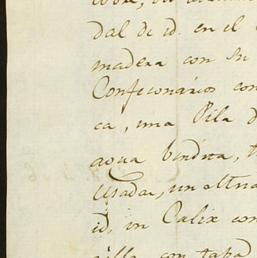 dal de id. en el
madera con su
Confecionarios con
ca, una Pila d
agua bendita, t
usadas, un
id, un Caliz con
con tapad